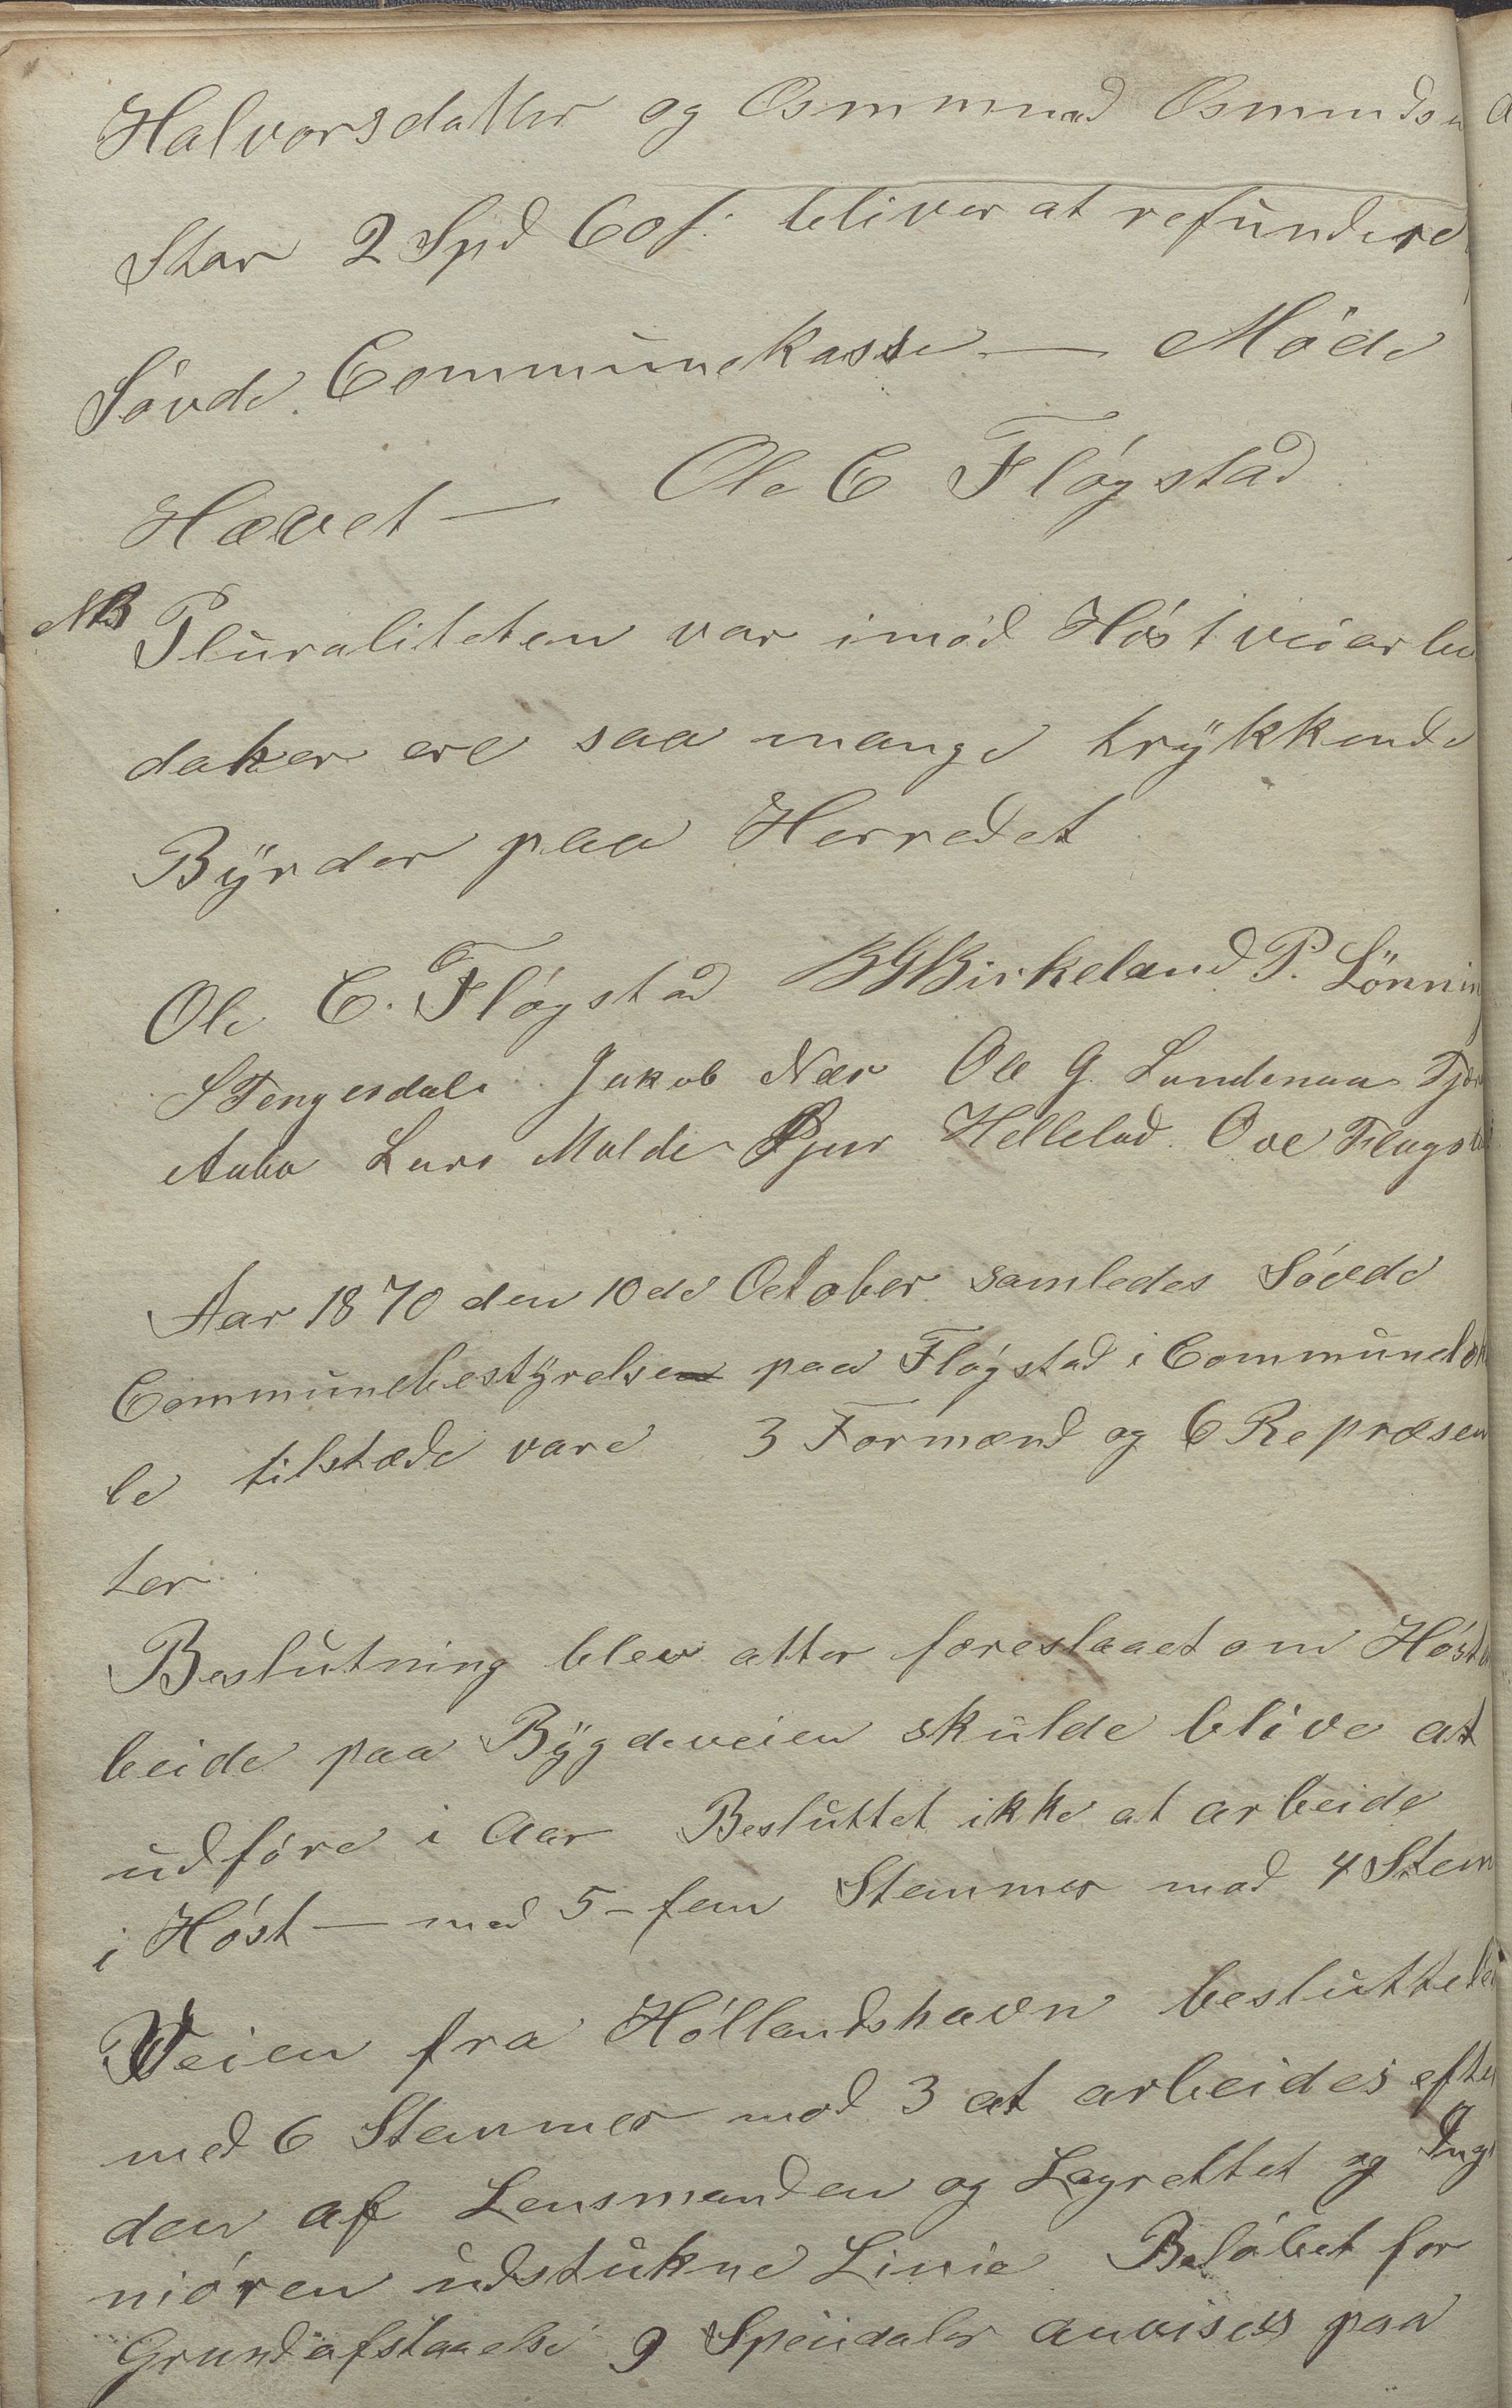 Halvorsdatter og Osmund Osmundsen
Stor 2 Spd 60 s. bliver at refundere
Søvde Communekasse — Möde
Hævet — Ole C Fløgstad
NB Pluraliteten var imod Høstveiarbei
da her ere saa mange trÿkkende
Bÿrder paa Herredet
Ole C. Fløgstad BGBirkeland P. Lönning
STengesdal Jakob Nær Ole G. Lundenaa
Aabø Lars Molde Hellelad Ove Fløgstad
Aar 1870 den 10de October samledes Søvde
Communebestÿrelse paa Fløgstad i Communeloka
le tilstæde vare 3 Formænd og 6 Repræsen
ter
Beslutning blev atter foreslaaet om Høstar
beide paa Bÿgdeveien skulde blive at
udføre i Aar Besluttet ikke at arbeide
i Høst — med 5 – fem Stemmer mod 4 Stem
Veien fra Høllandshavn besluttedes
med 6 Stemmer mod 3 at arbeides efter
den af Lensmanden og Lagrettet og Inge
niøren udstukne Linie Beløbet for
Grundafstaaelse 9 Speiidaler anvises paa